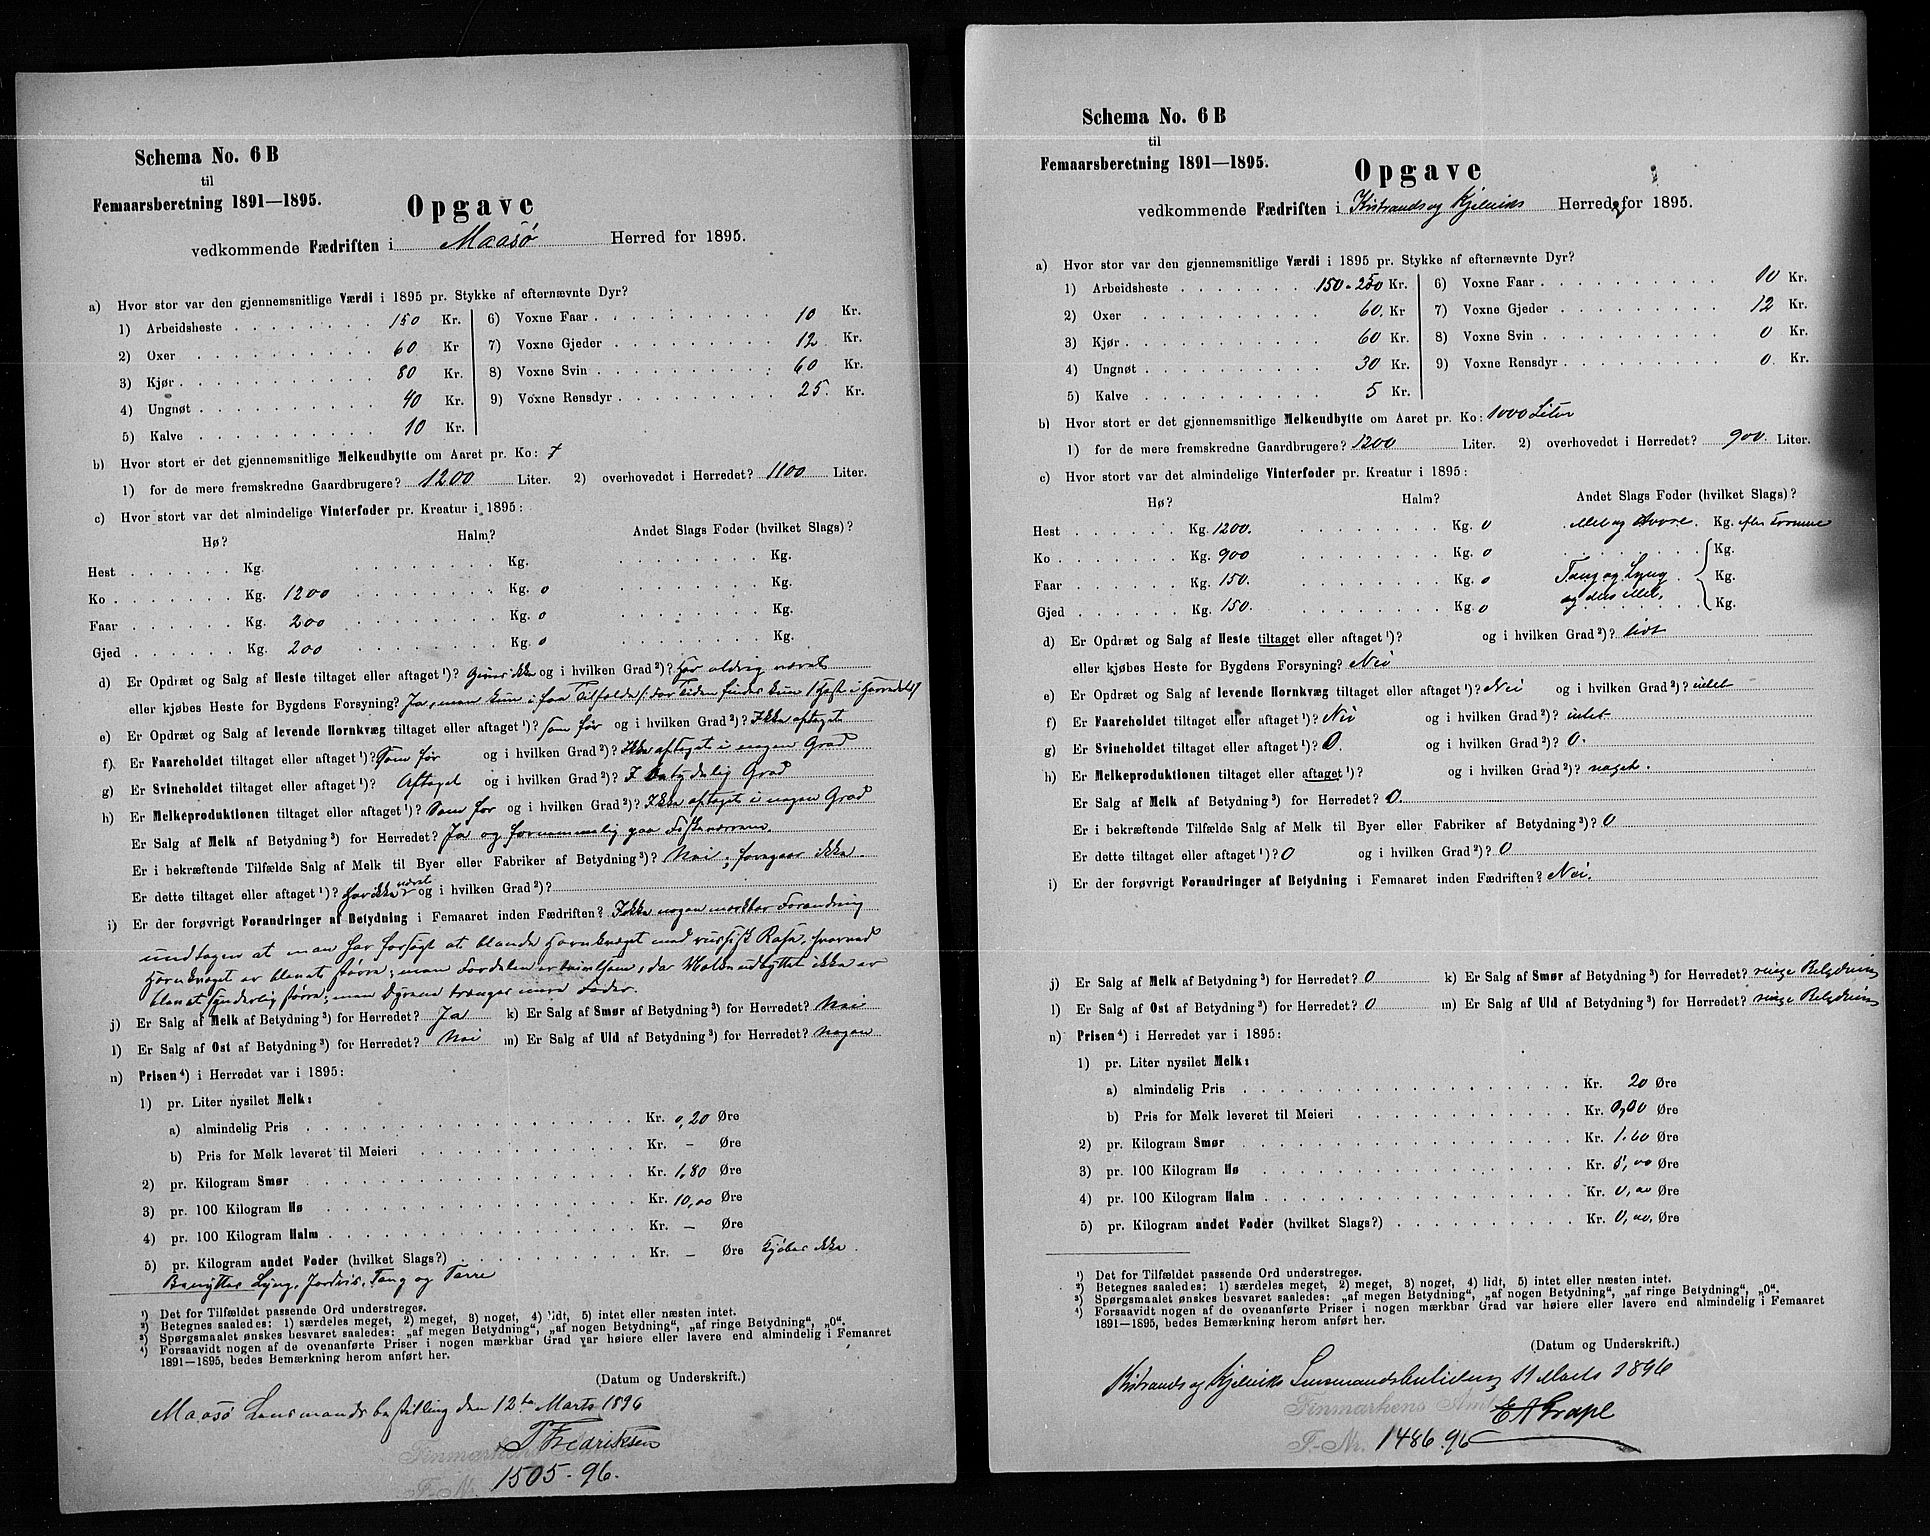 Schema No. 6 B
til
Femaarsberetning 1891—1895.
Opgave
vedkommende Fædriften i Maasø Herred for 1895.
a) Hvor stor var den gjennemsnitlige Værdi i 1895 pr. Stykke af efternævnte Dyr?
1) Arbeidsheste 150 Kr. 6) Voxne Faar 10 Kr.
2) Oxer 60 Kr 7) Voxne Gjeder 12 Kr.
3) Kjør 80 Kr. 8) Voxne Svin 60 Kr.
4) Ungnøt 40 Kr. 9) Voxne Rensdyr 25. Kr.
5) Kalve 10 Kr.
b) Hvor stort er det gjennemsnitlige Melkeudbytte om Aaret pr. Ko:
1) for de mere fremskredne Gaardbrugere? 1200 Liter. 2) overhovedet i Herredet? 1100 Liter.
c) Hvor stort var det almindelige Vinterfoder pr. Kreatur i 1895:
Hø? Halm? Andet Slags Foder (hvilket Slags)?
Hest Kg. Kg. Kg.
Ko Kg. 1200 Kg. 0 Kg.
Faar Kg. 200 Kg. 0 Kg.
Gjed Kg. 200 Kg. 0 Kg.
d) Er Opdræt og Salg af Heste tiltaget eller aftaget¹)? Gives ikke og i hvilken Grad²)? Har aldrig været
eller kjøbes Heste for Bygdens Forsyning? Ja, men kun i faa Tilfælde, for Tiden findes kun 1 Hest i Herredet
e) Er Opdræt og Salg af levende Hornkvæg tiltaget eller aftaget¹)? som før og i hvilken Grad²)? Ikke aftaget
f) Er Faareholdet tiltaget eller aftaget¹)? Som før og i hvilken Grad²)? Ikke aftaget i nogen Grad
g) Er Svineholdet tiltaget eller aftaget¹)? Aftaget og i hvilken Grad²)? I betydelig Grad
h) Er Melkeproduktionen tiltaget eller aftaget¹)? Som før og i hvilken Grad²)? Ikke aftaget i nogen Grad
Er Salg af Melk af Betydning³) for Herredet? Ja og fornemmelig paa Fiskeværene.
Er i bekræftende Tilfælde Salg af Melk til Byer eller Fabriker af Betydning³)? Nei, foregaar ikke.
Er dette tiltaget eller aftaget¹)? Har ikke været og i hvilken Grad²)?
i) Er der forøvrigt Forandringer af Betydning i Femaaret inden Fædriften? Ikke nogen mærkbar Forandring
undtagen at man har forsøgt at blande Hornkvæget med russisk Rase, hvorved
Hornkvæget er blevet større; men Fordelen er tvivlsom, da Melkeudbyttet ikke er
blevet synderlig større; men Dyrene trænger mere Foder.
j) Er Salg af Melk af Betydning³) for Herredet? Ja k) Er Salg af Smør af Betydning³) for Herredet? Nei
l) Er Salg af Ost af Betydning³) for Herredet? Nei m) Er Salg af Uld af Betydning³) for Herredet? nogen
n) Prisen⁴) i Herredet var i 1895:
1) pr. Liter nysilet Melk:
a) almindelig Pris Kr. 0,20 Øre
b) Pris for Melk leveret til Meieri Kr. – Øre
2) pr. Kilogram Smør Kr. 1,80 Øre
3) pr. 100 Kilogram Hø Kr. 10,00 Øre
4) pr. 100 Kilogram Halm Kr. – Øre
5) pr. Kilogram andet Foder (hvilket Slags?) Kr. – Øre Kjøbes ikke.
Benyttes Lyng, Jordris, Tang og Tarre
¹) Det for Tilfældet passende Ord understreges.
²) Betegnes saaledes: 1) særdeles meget, 2) meget, 3) noget, 4) lidt, 5) intet eller næsten intet.
³) Spørgsmaalet ønskes besvaret saaledes: „af megen Betydning“, „af nogen Betydning“, „af ringe Betydning“, „0“.
⁴) Forsaavidt nogen af de ovenanførte Priser i nogen mærkbar Grad var høiere eller lavere end almindelig i Femaaret
1891—1895, bedes Bemærkning herom anført her.
(Datum og Underskrift.)
Maasø Lensmandsbestilling den 12te Marts 1896
T Fredriksen
Finmarkens
F.-Nr. 1505-96.
Schema No. 6 B
til
Femaarsberetning 1891—1895.
Opgave
vedkommende Fædriften i Kistrands og Kjelviks Herred for 1895.
a) Hvor stor var den gjennemsnitlige Værdi i 1895 pr. Stykke af efternævnte Dyr?
1) Arbeidsheste 150-250 Kr. 6) Voxne Faar 10 Kr.
2) Oxer 60. Kr 7) Voxne Gjeder 12 Kr.
3) Kjør 60 Kr. 8) Voxne Svin 0 Kr.
4) Ungnøt 30 Kr. 9) Voxne Rensdyr 0. Kr.
5) Kalve 5 Kr.
b) Hvor stort er det gjennemsnitlige Melkeudbytte om Aaret pr. Ko: 1000 Liter
1) for de mere fremskredne Gaardbrugere? 1200 Liter. 2) overhovedet i Herredet? 900 Liter.
c) Hvor stort var det almindelige Vinterfoder pr. Kreatur i 1895:
Hø? Halm? Andet Slags Foder (hvilket Slags)?
Hest Kg. 1200. Kg. 0 Mel og Havre. Kg.
Ko Kg. 900 Kg. 0 Kg.
Faar Kg. 150. Kg. 0 Tang og Lyng Kg.
Gjed Kg. 150. Kg. 0 Kg.
d) Er Opdræt og Salg af Heste tiltaget eller aftaget¹)? og i hvilken Grad²)? lidt
eller kjøbes Heste for Bygdens Forsyning? Nei
e) Er Opdræt og Salg af levende Hornkvæg tiltaget eller aftaget¹)? Nei og i hvilken Grad²)? intet
f) Er Faareholdet tiltaget eller aftaget¹)? Nei og i hvilken Grad²)? intet
g) Er Svineholdet tiltaget eller aftaget¹)? 0. og i hvilken Grad²)? 0.
h) Er Melkeproduktionen tiltaget eller aftaget¹)? og i hvilken Grad²)? noget.
Er Salg af Melk af Betydning³) for Herredet? 0.
Er i bekræftende Tilfælde Salg af Melk til Byer eller Fabriker af Betydning³)? 0
Er dette tiltaget eller aftaget¹)? 0 og i hvilken Grad²)? 0
i) Er der forøvrigt Forandringer af Betydning i Femaaret inden Fædriften? Nei.
j) Er Salg af Melk af Betydning³) for Herredet? 0 k) Er Salg af Smør af Betydning³) for Herredet? ringe Betydning
l) Er Salg af Ost af Betydning³) for Herredet? 0 m) Er Salg af Uld af Betydning³) for Herredet? ringe Betydning
n) Prisen⁴) i Herredet var i 1895:
1) pr. Liter nysilet Melk:
a) almindelig Pris Kr. 20 Øre
b) Pris for Melk leveret til Meieri Kr. 0,00 Øre
2) pr. Kilogram Smør Kr. 1.60 Øre
3) pr. 100 Kilogram Hø Kr. 5,00 Øre
4) pr. 100 Kilogram Halm Kr. 0,00 Øre
5) pr. Kilogram andet Foder (hvilket Slags?) Kr. 0,00, Øre
¹) Det for Tilfældet passende Ord understreges.
²) Betegnes saaledes: 1) særdeles meget, 2) meget, 3) noget, 4) lidt, 5) intet eller næsten intet.
³) Spørgsmaalet ønskes besvaret saaledes: „af megen Betydning“, „af nogen Betydning“, „af ringe Betydning“, „0“.
⁴) Forsaavidt nogen af de ovenanførte Priser i nogen mærkbar Grad var høiere eller lavere end almindelig i Femaaret
1891—1895, bedes Bemærkning herom anført her.
(Datum og Underskrift.)
Kistrands og Kjelviks Lensmandsbestilling 11 Marts 1896
Finmarkens Amt
E A Grape
F.-Nr. 1486.96